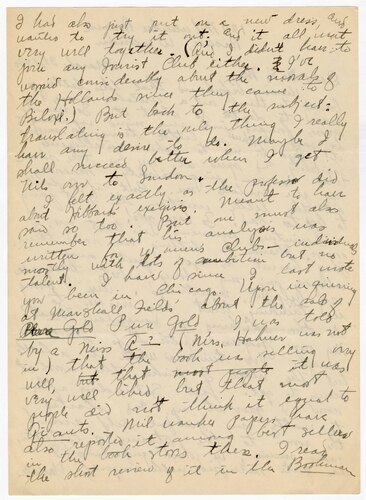 I had also just put on a new dress, and
wanted to try it out. And it all went
very well together. (And I didn't have to
join any Tourist Club either. I've
worried considerably about the morals of
the Hollands since they came to
Biloxi.) But back to the subject:
translating is the only thing I really
have any desire to do. Maybe I
shall succeed better when I get
this off to London.
I felt exactly as the professor did
about Jibbard's exegisis. Meant to have
said so too. But one must also
remember that his analysis was
written for Womens Clubs - individuals
mostly with lots of ambition but no
talent.
I have since I last wrote
you been in Chicago. Upon inquiring
at Marshall Fields' about the sale of
Pure Gold I was told
by a Miss (Mrs. Hahner was not
in) that the book was selling very
well, but that most people it was
very well liked but that most
people did not think it equal to
Giants. Milwaukee papers have
also reported it among best sellers
in the book stores there. I read
the short review of it in the Bookman